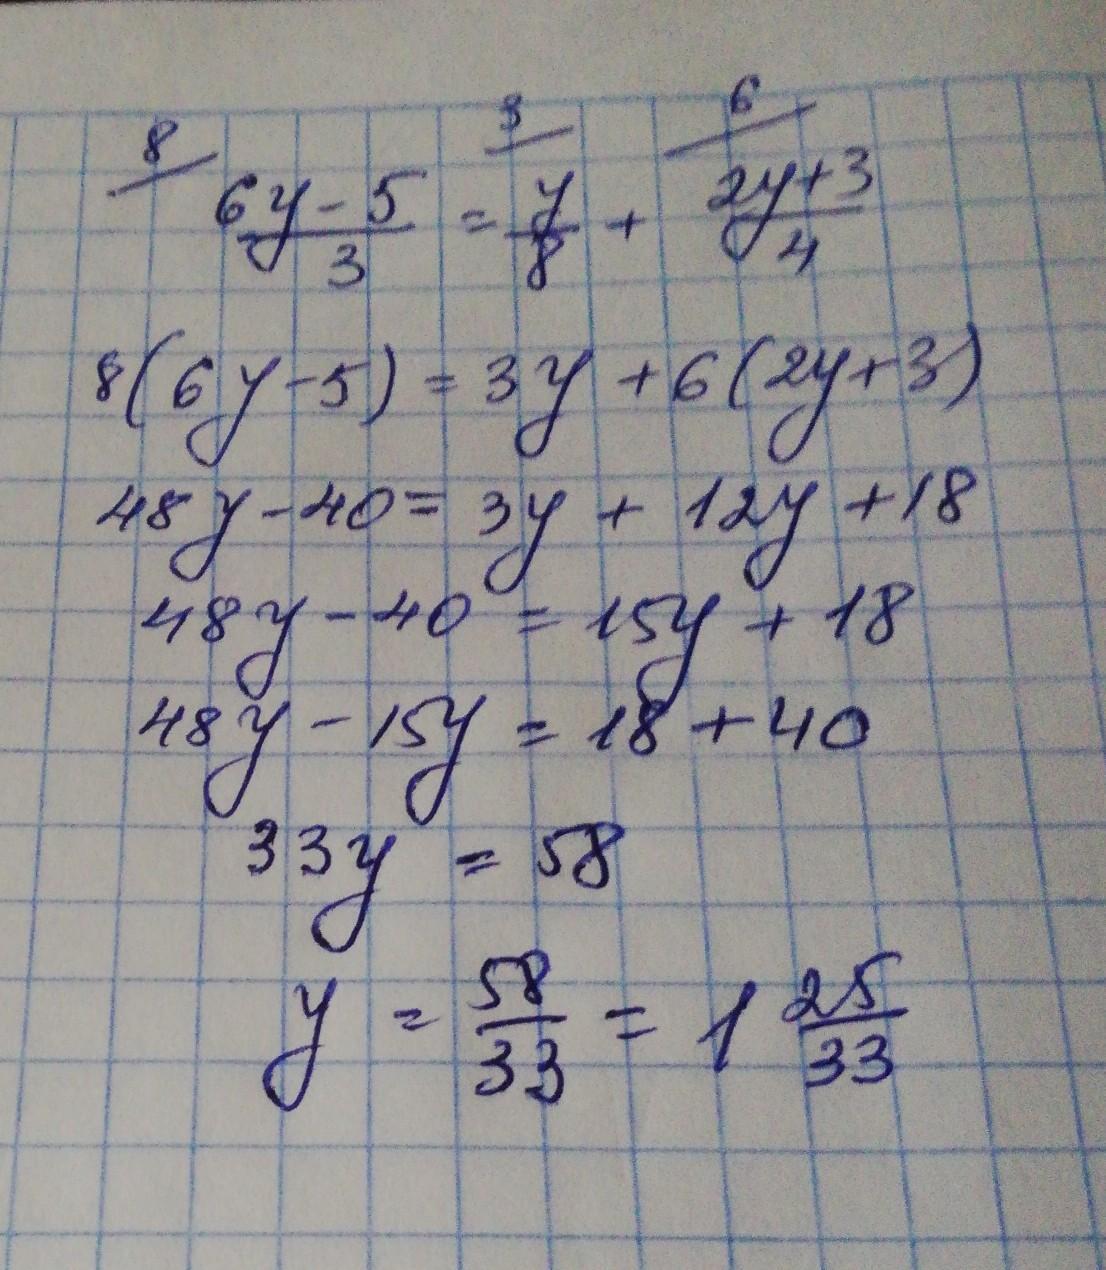 8 3 6
6y-5/3 = y/8 + 2y+3/4
8(6y-5) = 3y + 6(2y+3)
48y-40 = 3y + 12y + 18
48y - 40 = 15y + 18
48y - 15y = 18 + 40
33y = 58
y = 58/33 = 1 25/33